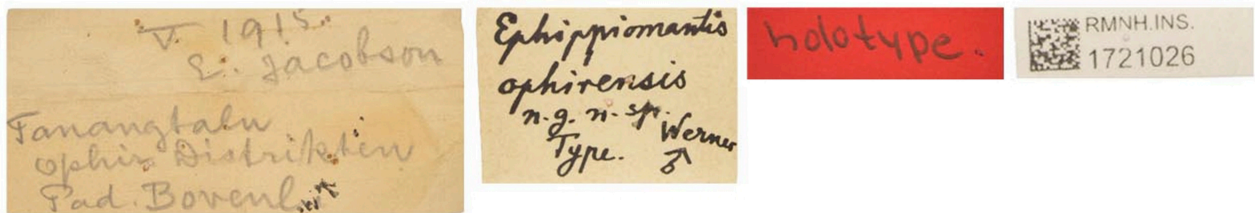 V. 1915.
E. Jacobson
Tanangtalu
Ophir Distrikten
Pad. Bovenl.
Ephippiomantis
ophirensis
n.g. n. sp.
Werner
Type. ♂
holotype.
RMNH.INS.
1721026